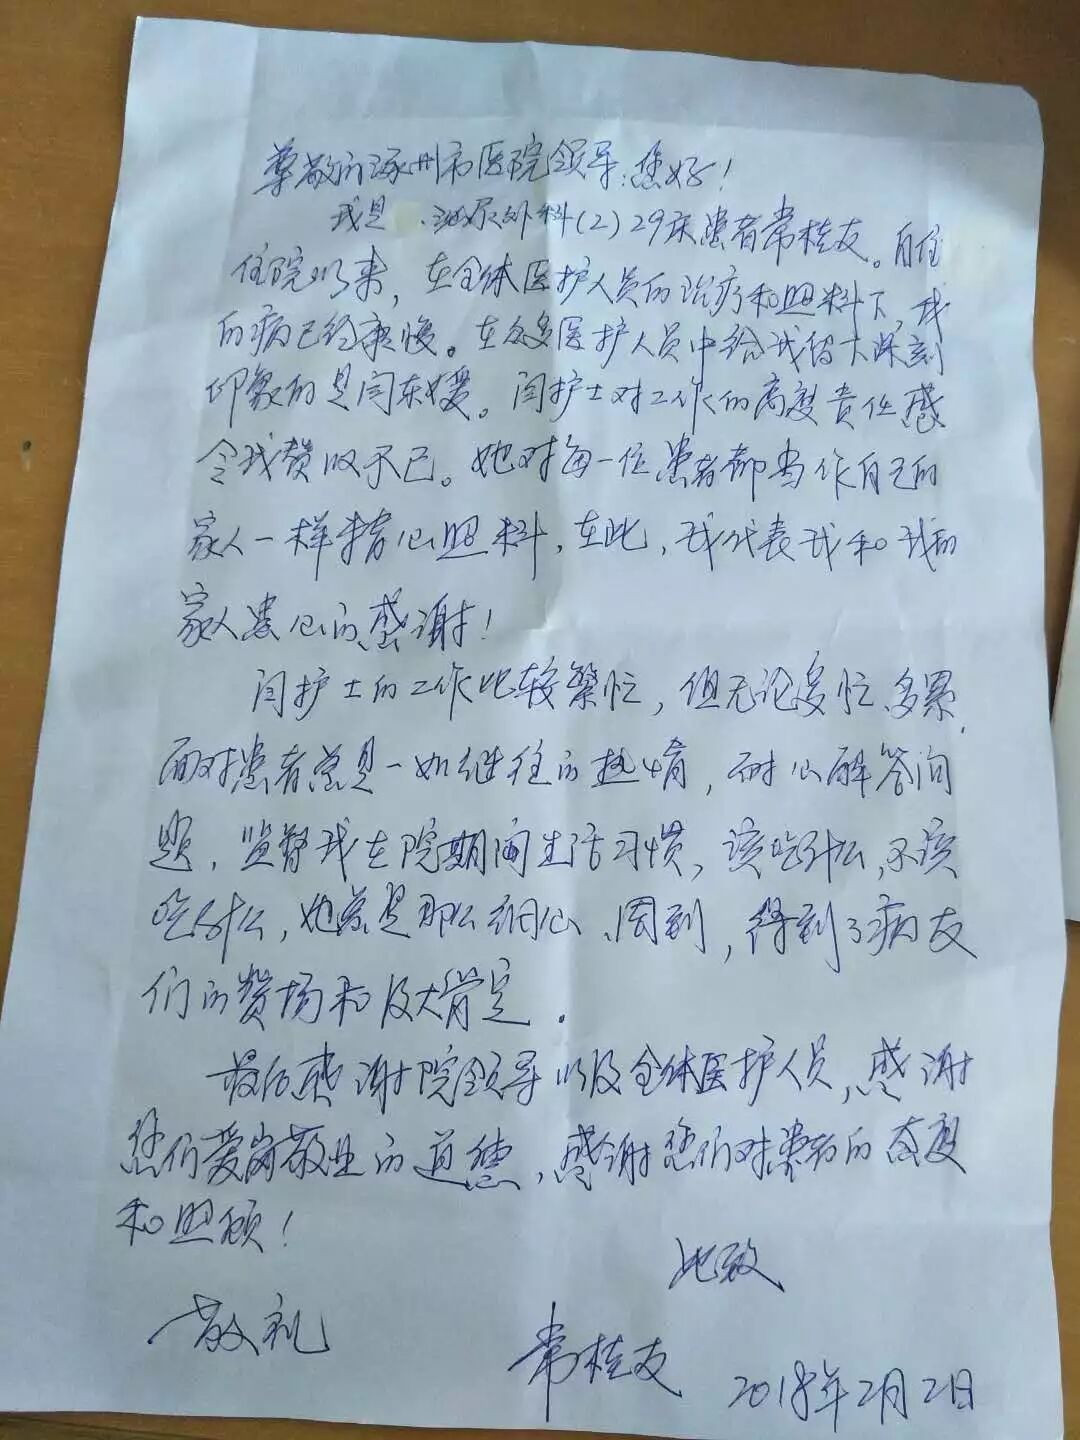 尊敬的涿州市医院领导:您好!
我是 泌尿外科(2)29床患者常桂友。自住
住院以来,在全体医护人员的治疗和照料下,我
的病已经康愎。在众多医护人员中给我留大深刻
印象的是闫东媛。闫护士对工作的高度责任感
令我赞叹不已。她对每一位患者都当作自己的
家人一样精心照料,在此,我代表我和我的
家人衷心的感谢!
闫护士的工作比较繁忙,但无论多忙、多累,
面对患者总是一如继往的热情,耐心解答问
题,监督我在院期间生活习惯,该吃什么,不该
吃什么,她总是那么细心、周到,得到了病友
们的赞扬和极大肯定.
最后感谢院领导以及全体医护人员,感谢
您们爱岗敬业的道德,感谢您们对患者的态度
和照顾!
此致
敬礼
常桂友 2018年2月2日